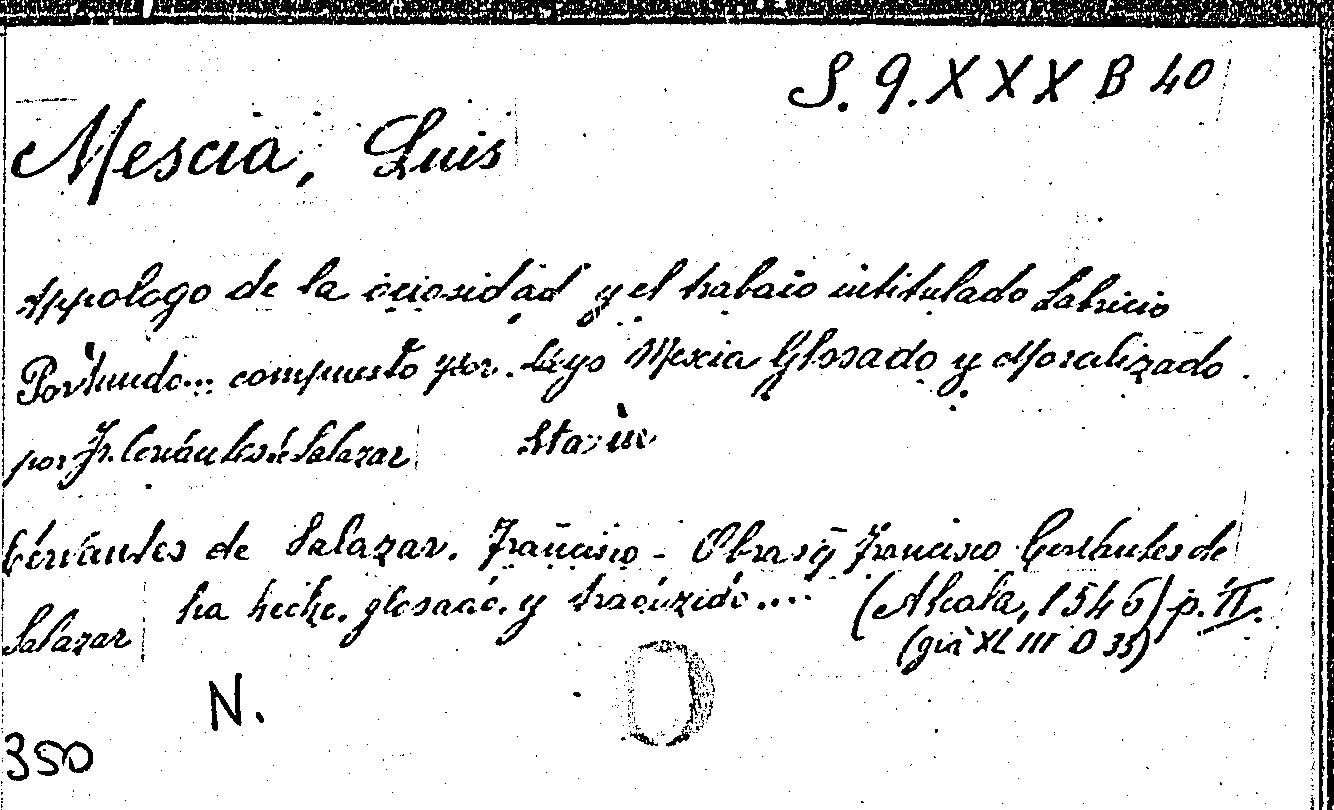 S. q. XXX B 40
Mescia, Luis
Appologo de la ociosidad y el trabaio intitulado Labricio
Portundo... compuesto por Luys Mexia Glosado y Moralizado
por Fr. Cervántes de Salazar Sta in
Cervántes de Salazar. Francisco - Obras q̃ Francisco Cervántes de
Salazar ha hecho, glosado, y traduzido.... (Alcala, 1546) p. II.
(già XL III D 35)
N.
350